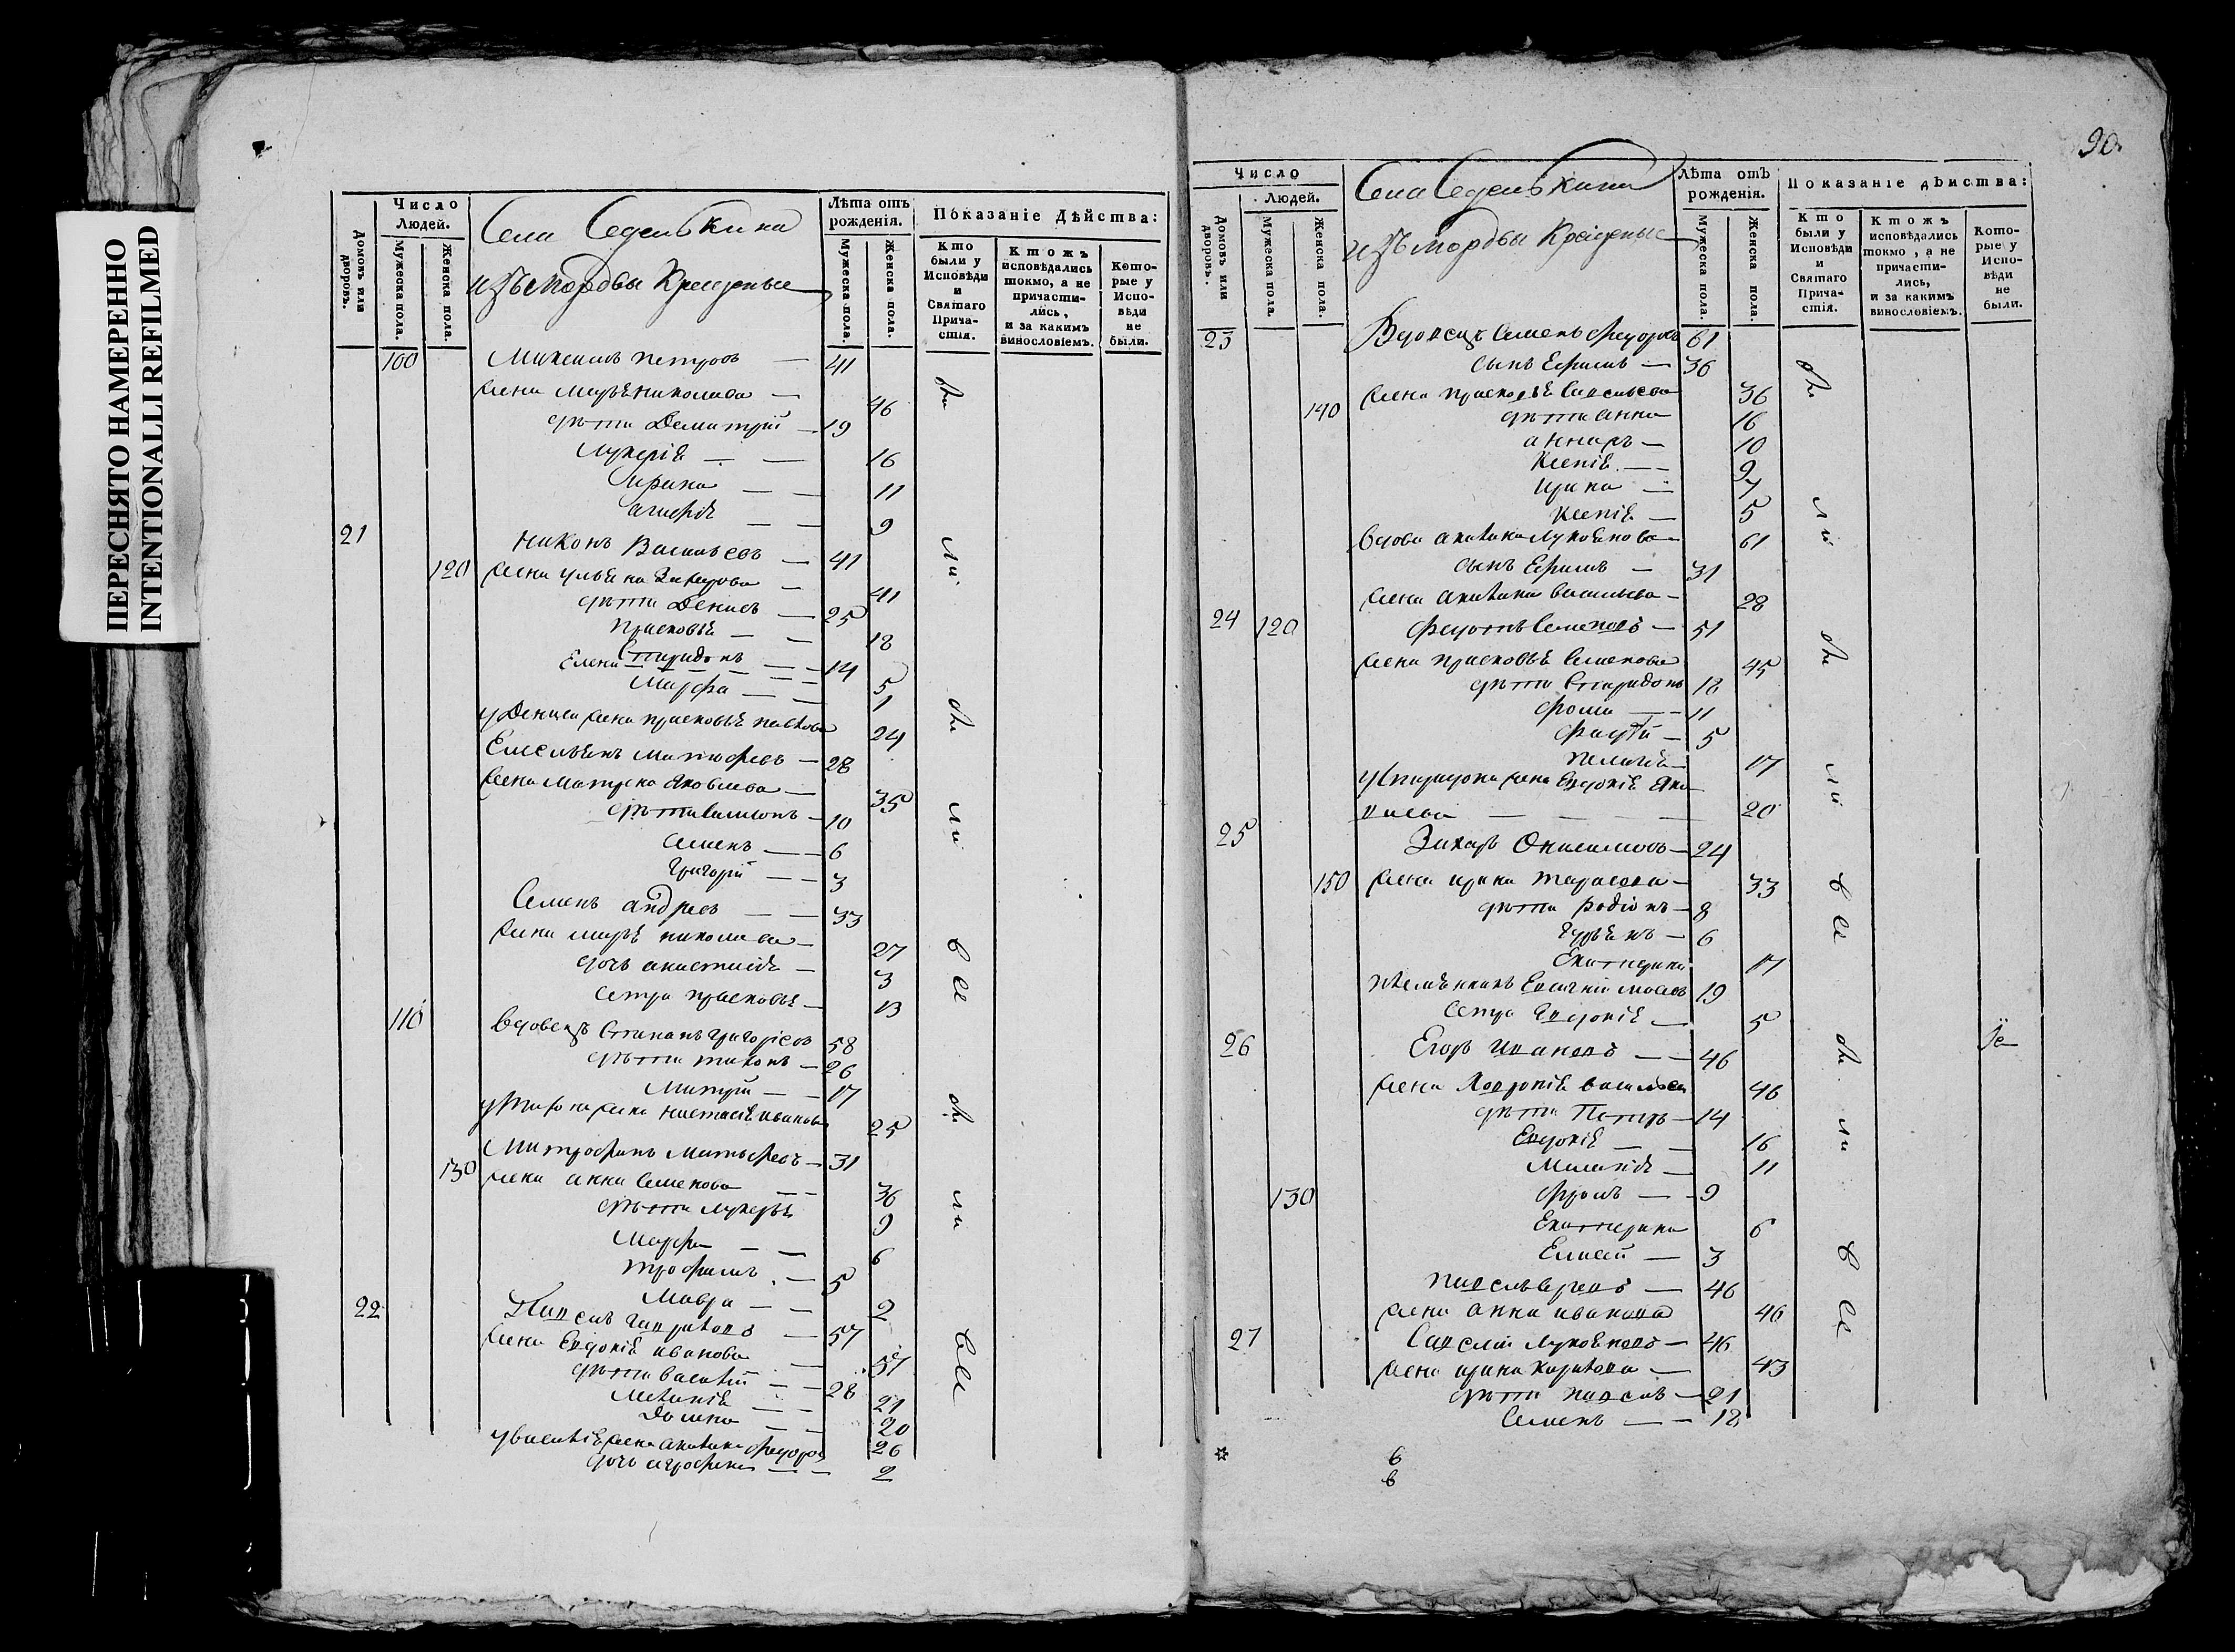 ПЕРЕСНЯТО НАМЕРЕННО
INTENTIONALLI REFILMED
Число
Людей.
Домовъ или дворовъ.
Мужеска пола.
Женска пола.
Села Седелькина
изъ мордвы крещеные
Лѣта отъ рожденія.
Мужеска пола.
Женска пола.
Показаніе Дѣйства:
Кто были у Исповѣди и Святаго Причастія.
Ктожъ исповѣдались токмо, а не причастились, и за какимъ винословіемъ.
Которые у Исповѣди не были.
100 Максимъ Петровъ — 41
жена Марья Николаева — 46
дѣти Демитрій — 19
Лукерiя — 16
Ирина — 11
9
21 Никонъ Васильевъ — 41
120 жена Ульяна 41
дѣти Денисъ — 25
Прасковья — 18
Спиридонъ — 14
Елена — 5
Марфа — 1
у Дениса жена Прасковья 24
Емельянъ — 28
жена Матрена Яковлева — 35
дѣти 10
Семенъ — 6
Григорій — 3
Семенъ Андреевъ — 33
жена Марья Николаева — 27
дочь Анастасiя — 3
сестра Прасковья — 13
110 вдовецъ Степанъ Григорьевъ 58
дѣти Тихонъ — 26
Митрій — 17
у Тихона жена Настасья Иванова 25
Митрофанъ — 31
130 жена Анна Семенова 36
дѣти Лукерья 9
Марфа — 6
Трофимъ — 5
Мавра — 2
22 Павелъ 57
жена Евдокiя Иванова — 51
дѣти Василiй — 28
21
Домна 20
у Василiя жена Акилина Федорова 26
дочь Агрофена — 2
были у исповеди все
90
Число
Людей.
Домовъ или дворовъ.
Мужеска пола.
Женска пола.
Села Седелькина
изъ мордвы крещеные
Лѣта отъ рожденія.
Мужеска пола.
Женска пола.
Показаніе дѣйства:
Кто были у Исповѣди и Святаго Причастія.
Ктожъ исповѣдались токмо, а не причастились, и за какимъ винословіемъ.
Которые у Исповѣди не были.
23 Вдовецъ Семенъ Федоровъ 61
сынъ Ефимъ — 36
140 жена Прасковья Савельева 36
дѣти Анна 16
10
Ксенiя — 9
Ирина — 7
Ксенiя — 5
вдова Акилина Лукоянова — 61
сынъ Ефимъ — 31
жена Акилина Васильева — 28
24 120 Федотъ Семеновъ — 51
жена Прасковья Семенова 45
дѣти Спиридонъ 18
Фома — 11
5
Пелагiя 17
у Спиридона жена Евдокiя Яковлева — 20
25 Захаръ Онисимовъ — 24
150 жена Ирина Тарасова — 33
дѣти Родiонъ — 8
Гурьянъ — 6
Екатерина 17
племянникъ 19
сестра Евдокiя — 5
26 Егоръ Ивановъ — 46
жена Васильева 46
дѣти Петръ — 14
Евдокiя — 16
Маланiя — 11
130 Фролъ — 9
Екатерина 6
Елисей — 3
Павелъ 46
жена Анна Иванова 46
27 Савелiй Лукояновъ — 46
жена Ирина 43
дѣти Павелъ — 21
Семенъ — 18